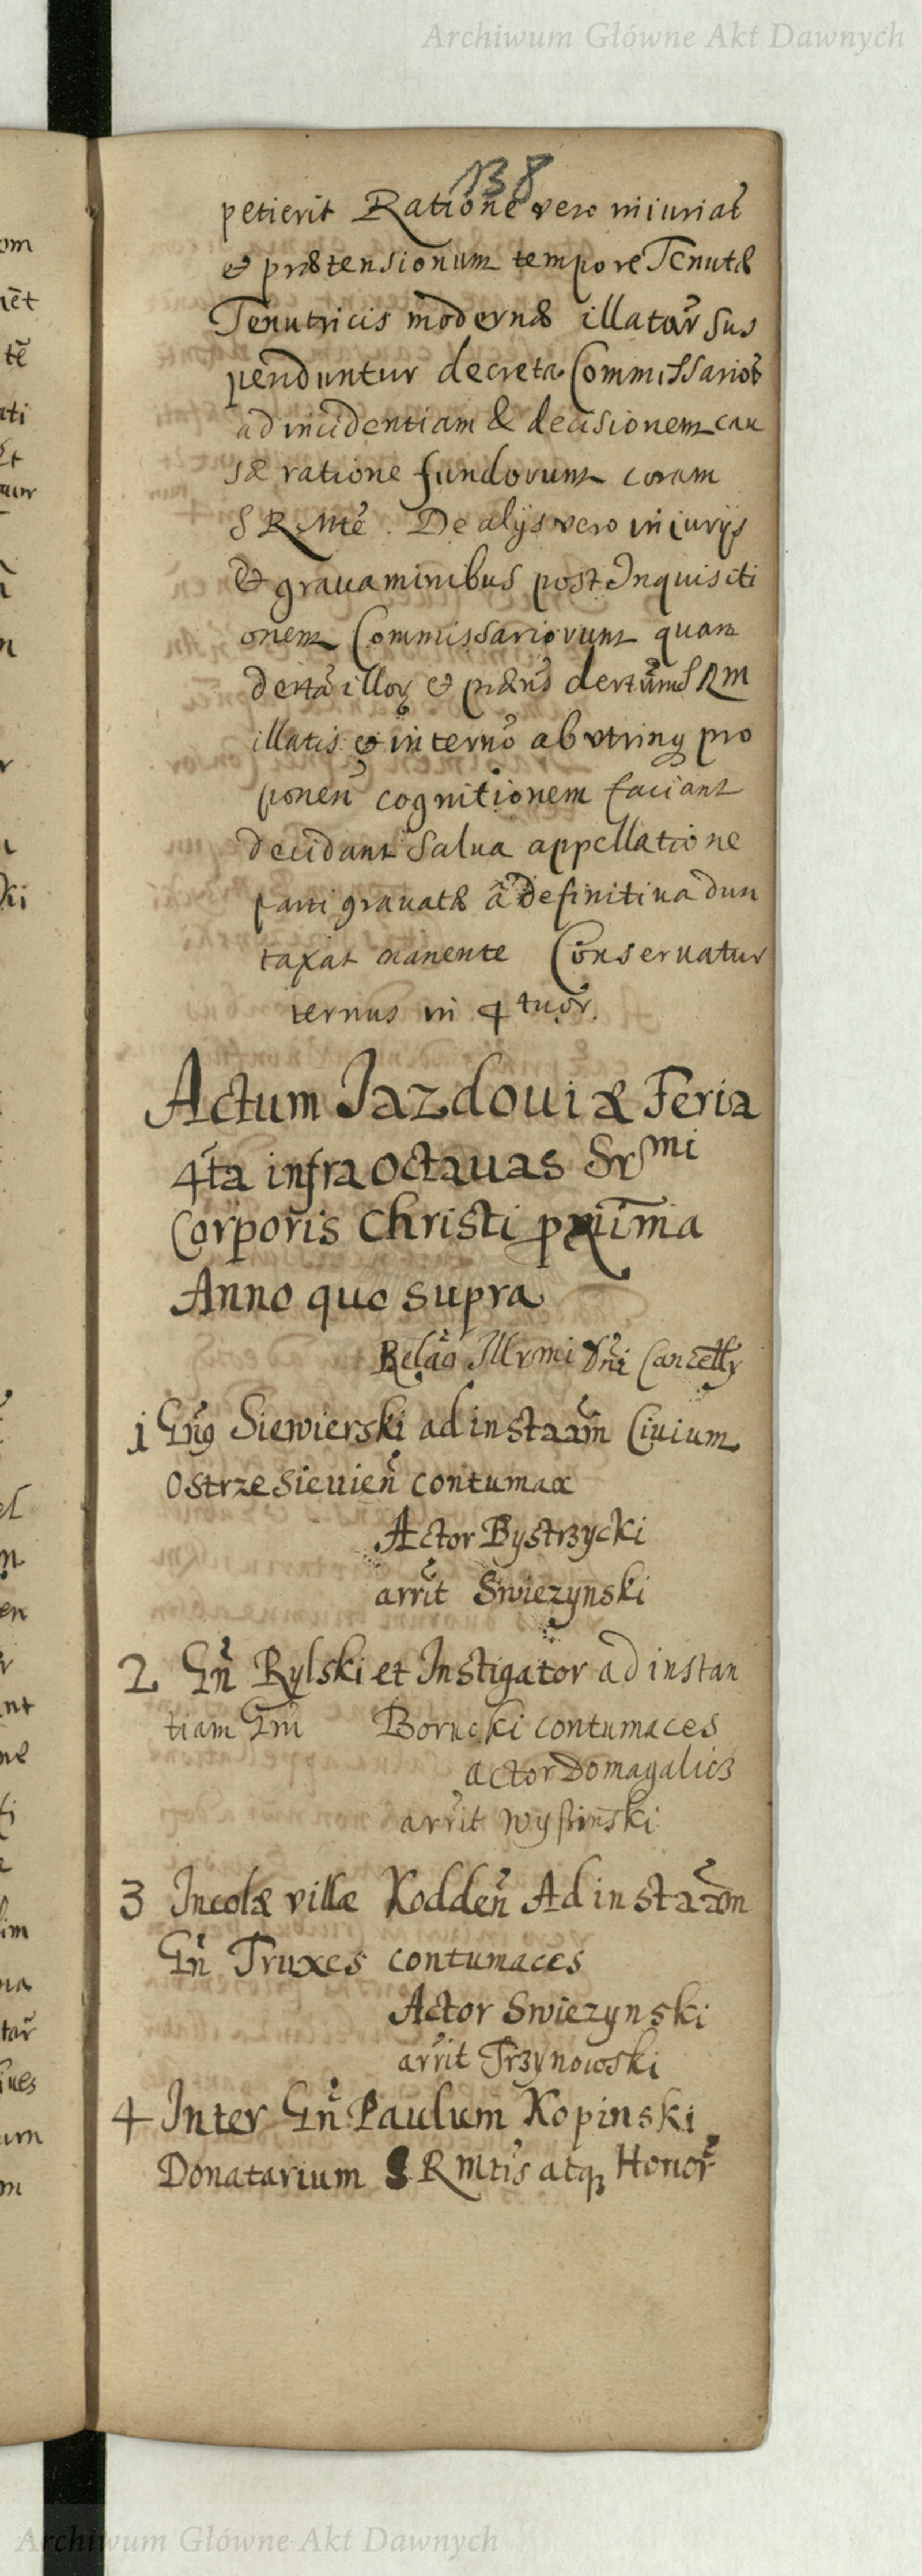 Archiwum Główne Akt Dawnych
138
petierit Ratione vero iniuriar
et prætensionum tempore Tenutæ
Tenutricis modernæ illatar̃ sus
penduntur decreta Commissarior̃
ad incidentiam & decisionem cau
sæ ratione fundorum coram
S R Mte. De alijs vero iniurijs
& grauaminibus post Inquisiti
onem Commissariorum
illor et S R M
illatis et ab vtrinq pro
ponen̄ cognitionem faciant
decidant salua appellatione
parti grauatæ à definitiua dun
taxat manente Conseruatur
ternus in 4tuor.
Actum Jazdouiæ Feria
4ta infra octauas Srmi
Corporis Christi proxima
Anno quo supra
Relao Illrmi Dni Cancelly
1 Gng Siewierski ad instaam Ciuium
Ostrzesieuien̄ contumax
Actor Bystrzycki
arrit Swiezynski
2 Gn̄ Rylski et Instigator ad instan
tiam Gni Borucki contumaces
actor Domagalicz
arrit
3 Incolæ villæ Kodden̄ Ad instaam
Gn̄ Truxes contumaces
Actor Swiezynski
arrit Trzynowski
4 Inter Gn̄ Paulum Kopinski
Donatarium S R Mtis atq Honor̃
Archiwum Główne Akt Dawnych